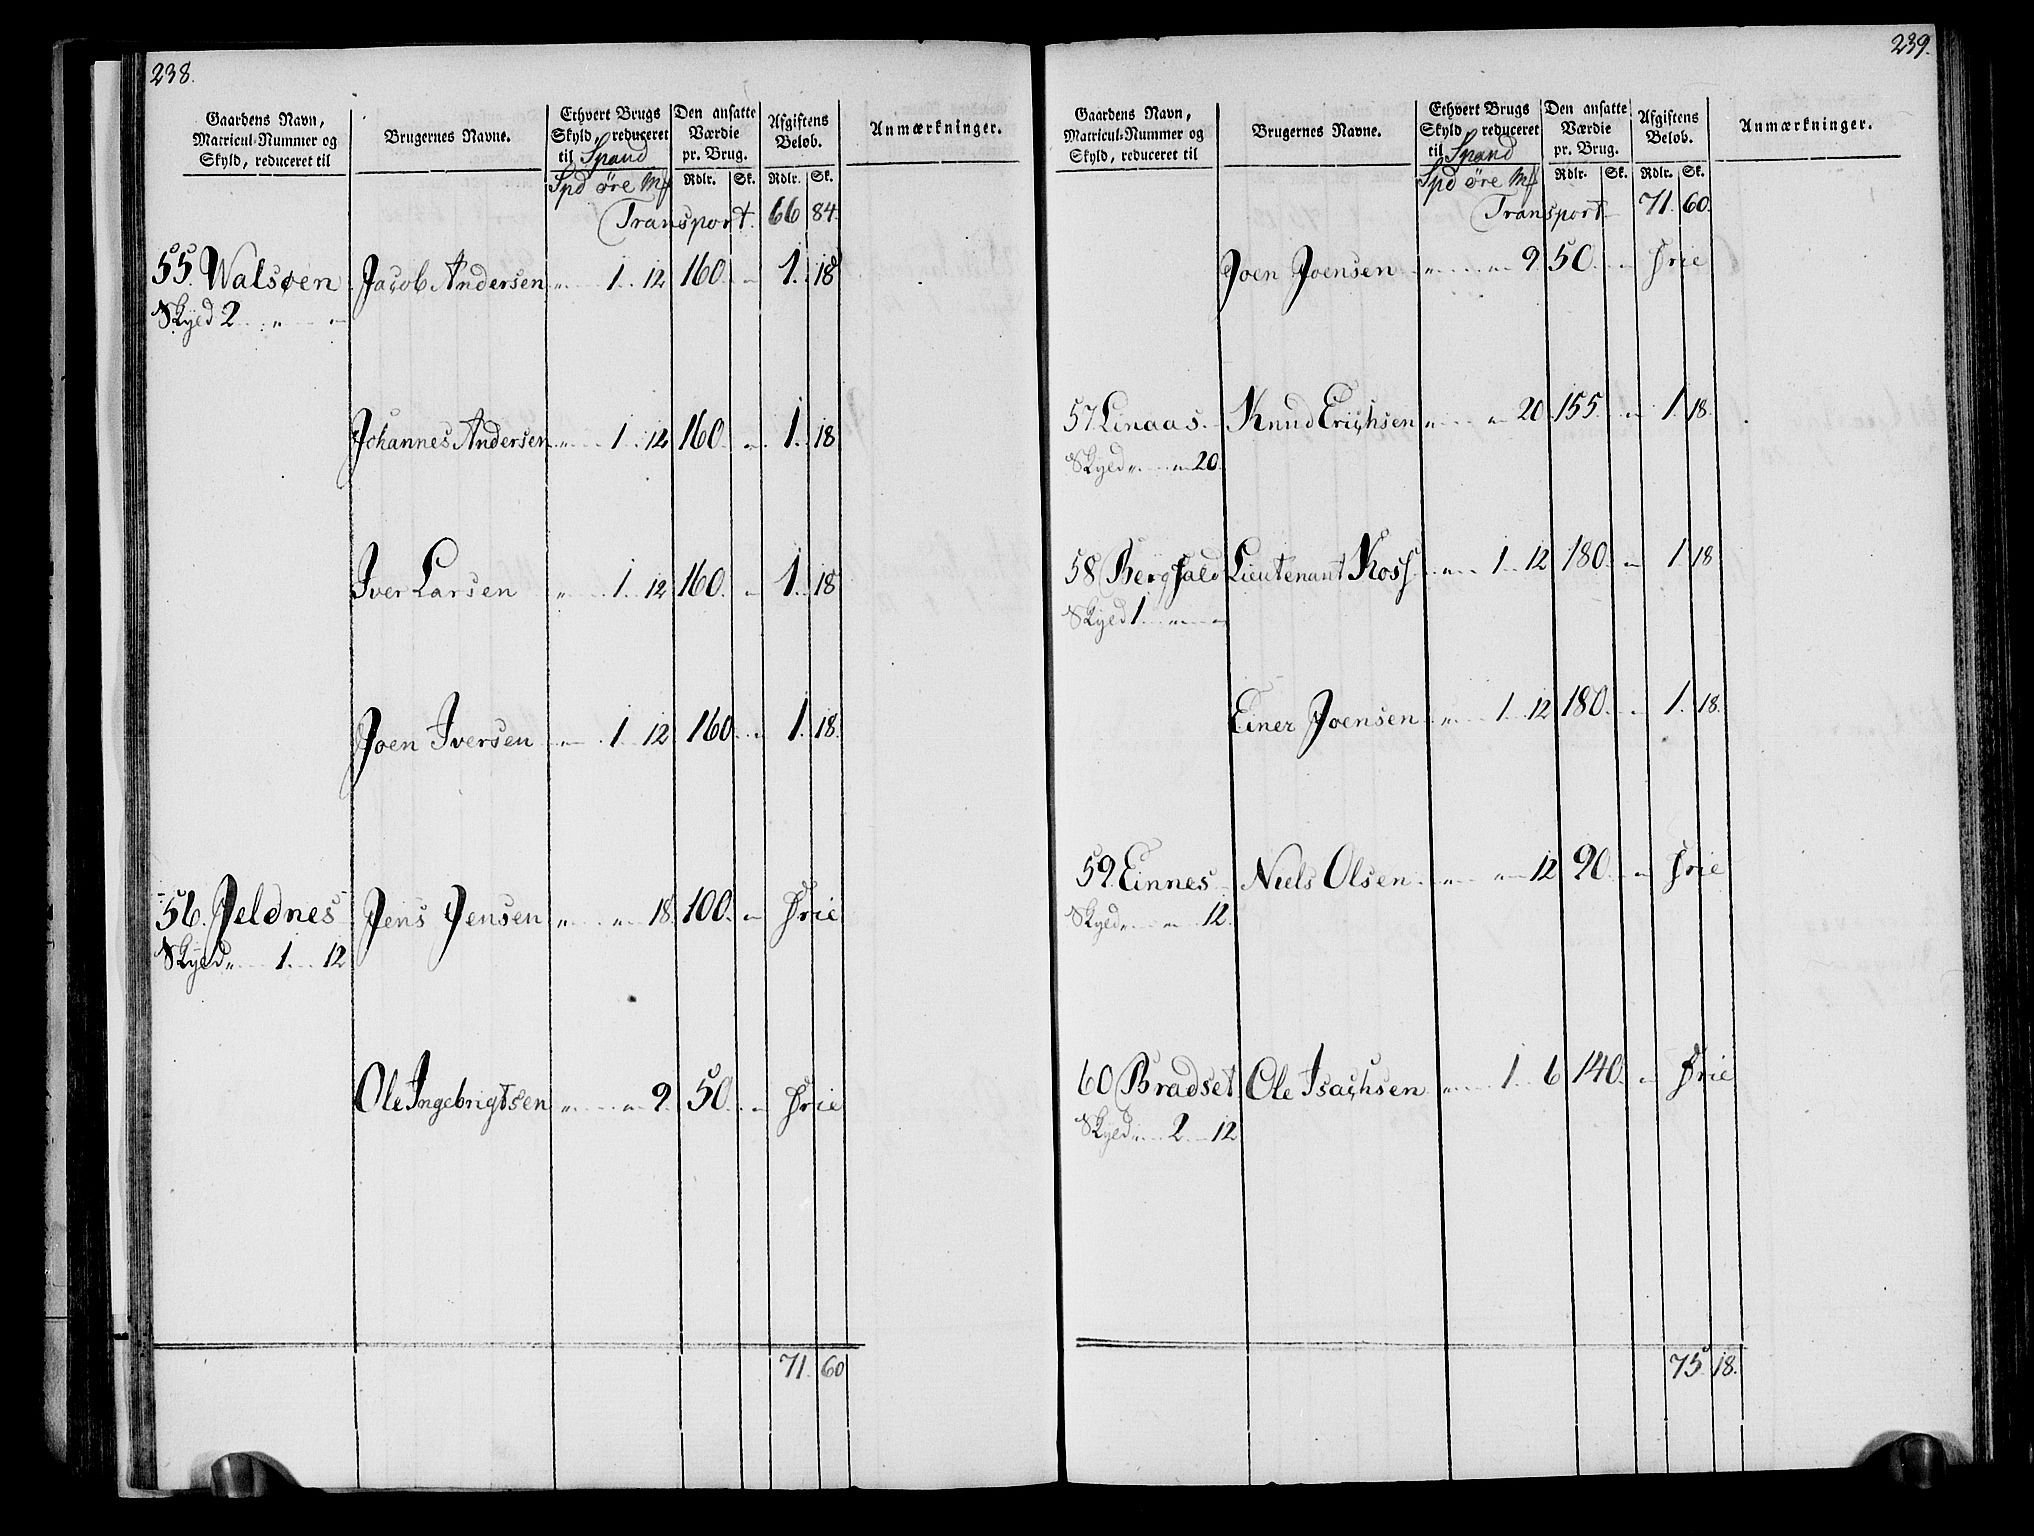 238.
Gaardens Navn, Matricul-Nummer og Skyld, reduceret til | Brugernes Navne. | Ethvert Brugs Skyld, reduceret til Spand | Den ansatte Værdie pr. Brug. | Afgiftens Belob. | Anmærkninger.
Spd øre Mf | Rdlr. | Sk. | Rdlr. | Sk.
Transport. 66 84.
55. Walsøen Jacob Andersen „ 1 12 160. „ 1. 18
Skyld 2 „ „
Johannes Andersen „ 1 12 160. „ 1. 18
Iver Larsen „ 1 12 160. „ 1. 18
Joen Iversen „ 1 12 160 „ 1. 18.
56. Jeldnes Jens Jensen „ „ 18. 100. „ Frie
Skyld „ 1 12
Ole Ingebrigtsen „ „ 9. 50. „ Frie
71. 60
239.
Gaardens Navn, Matricul-Nummer og Skyld, reduceret til | Brugernes Navne. | Ethvert Brugs Skyld, reduceret til Spand | Den ansatte Værdie pr. Brug. | Afgiftens Belob. | Anmærkninger.
Spd øre Mf | Rdlr. | Sk. | Rdlr. | Sk.
Transport 71. 60.
Joen Joensen „ „ 9 50. „ Frie
57 Linaas. Knud Erichsen „ „ 20. 155. „ 1 18.
Skyld „ „ 20.
58 Bergsald Lieutenant Koss „ 1 12 180. „ 1 18
Skyld 1 „ „
Einer Joensen „ 1 12 180. „ 1. 18.
59. Einnes Niels Olsen „ „ 12 90. „ Frie
Skyld „ „ 12.
60 Bradset Ole Isachsen „ 1 6 140. „ Frie
Skyld „ 2 12
75 18.